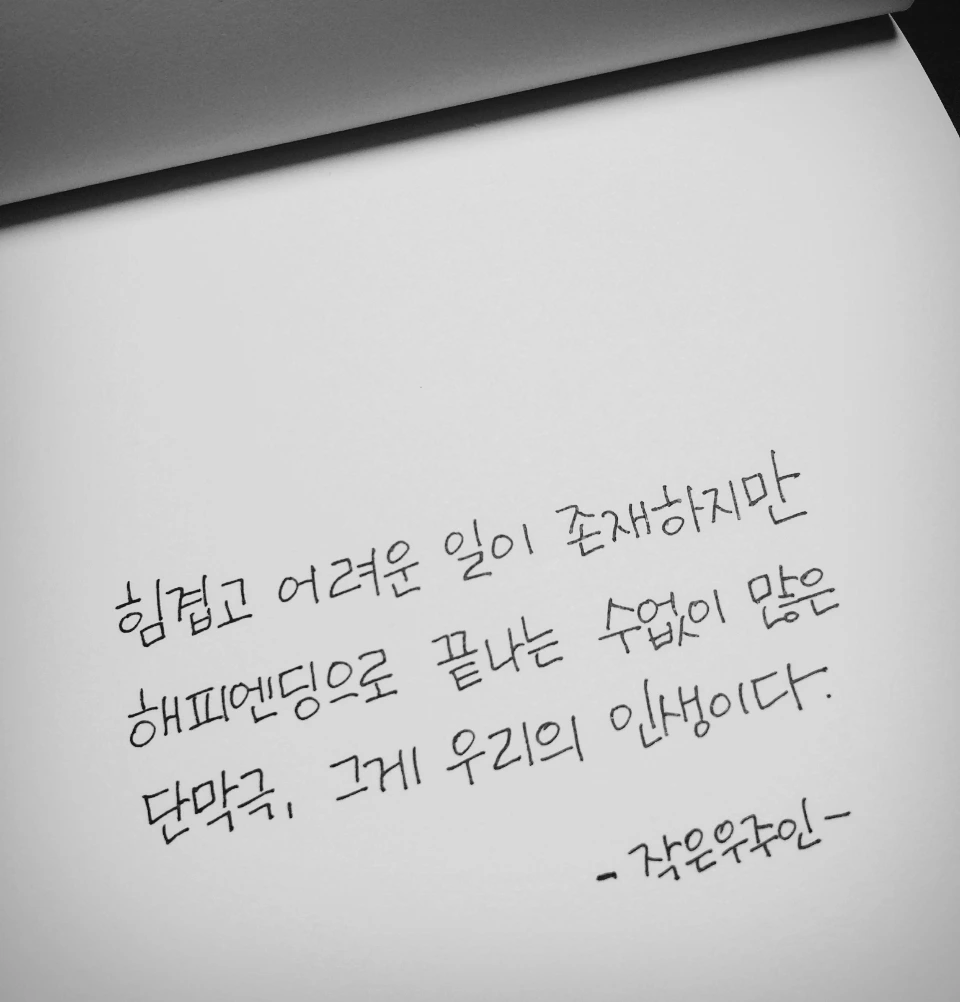 힘겹고 어려운 일이 존재하지만
해피엔딩으로 끝나는 수없이 많은
단막극, 그게 우리의 인생이다.
- 작은우주인 -